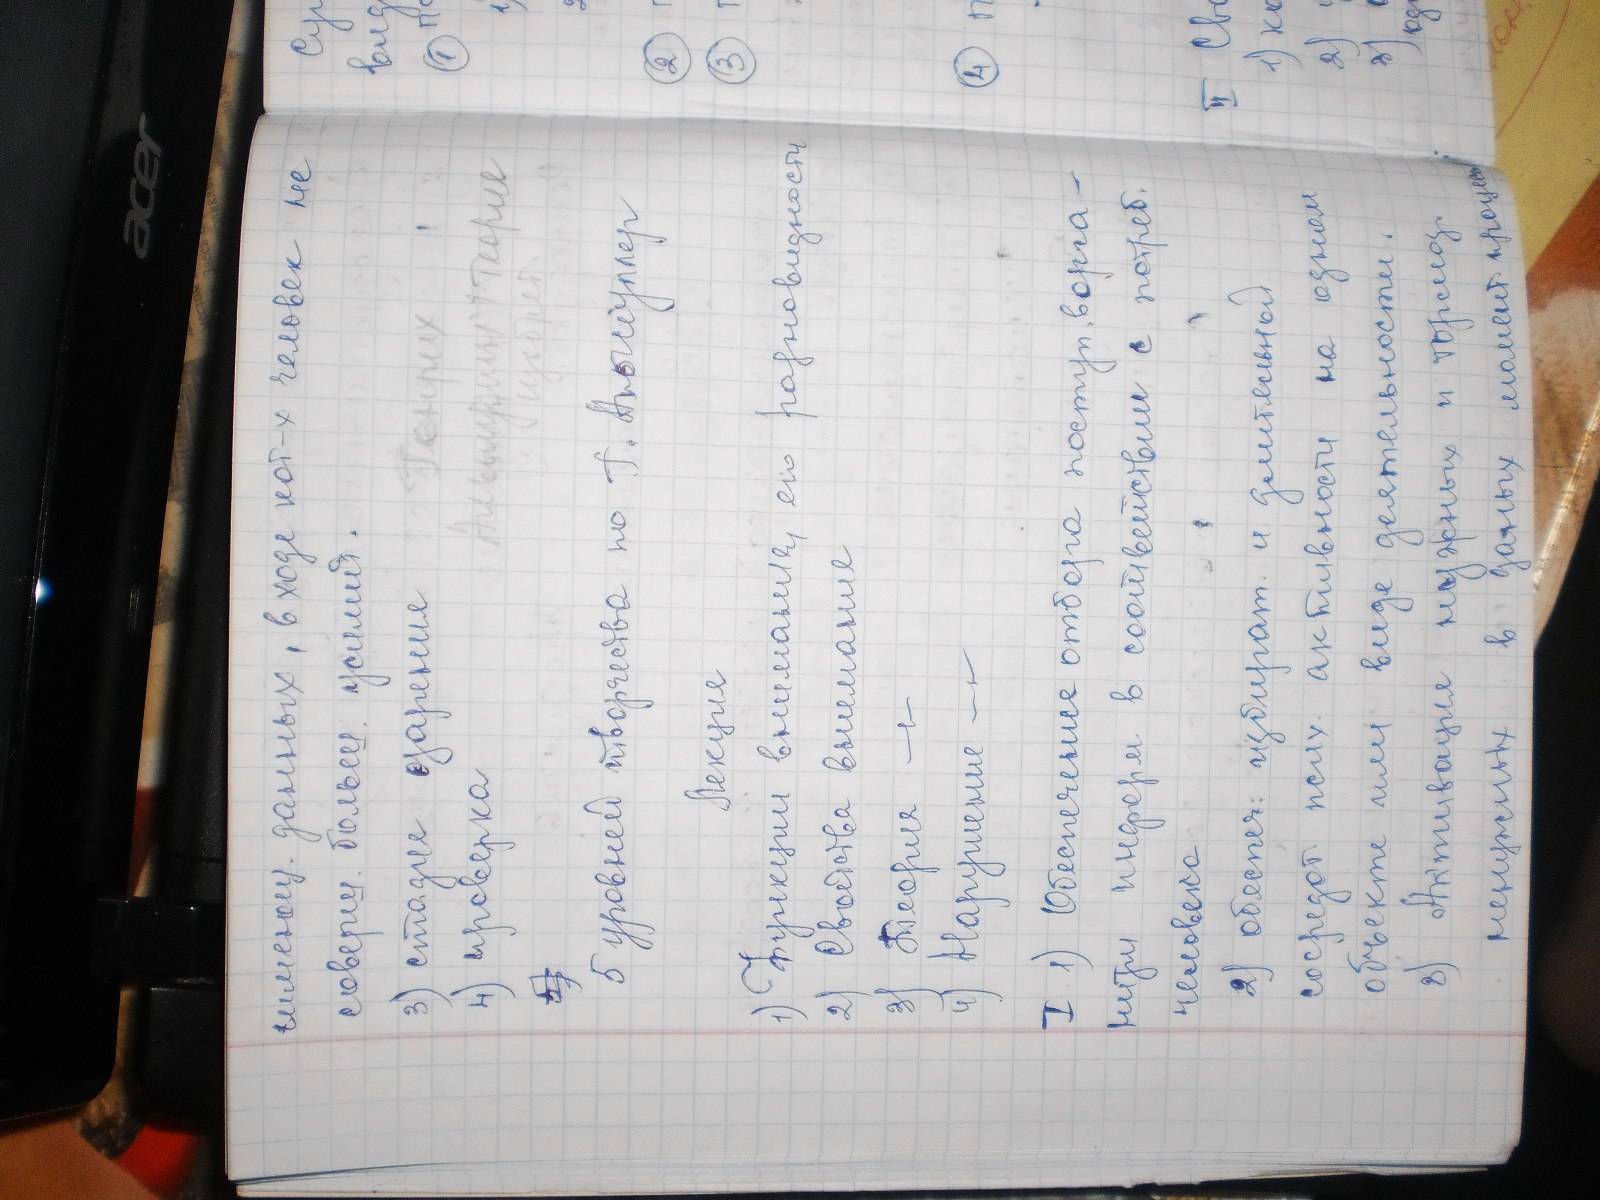 данных, в ходе кот-х человек не
соверш. больш. усилий.
3) стадия озарения
Генрих
4) проверка
Альтшуллер Теория
изобрет.
5 уровней творчества по Г. Альтшуллер
Лекция
1) Функции внимания, его разновидности
2) Свойства внимание
3) Теория —
4) Нарушение —
I 1) Обеспечение отбора поступ. в орга-
низм информ в соответствии с потреб.
человека
2) обеспеч: избират. и длительный
сосредот псих. активности на одном
объекте или виде деятельности.
3) Активация нужных и тормоз.
ненужных в даных момент процес
①
②
③
④
II Сво
1)
2)
3)
acer